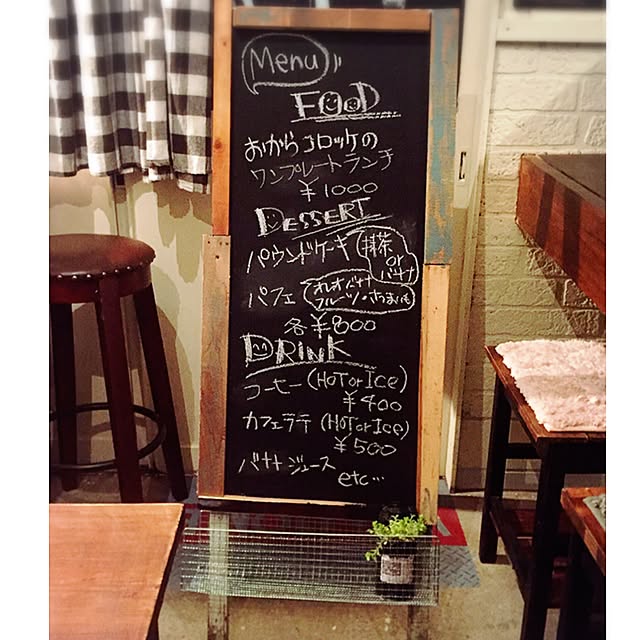 Menu
FOOD
おからコロッケの
ワンプレートランチ
¥1000
DESSERT
パウンドケーキ (抹茶
or
バナナ
パフェ (オレオ・バナナ
フルーツ・さつまいも)
各¥800
DRINK
コーヒー (HOT or ICE)
¥400
カフェラテ (HOT or ICE)
¥500
バナナジュース
etc...